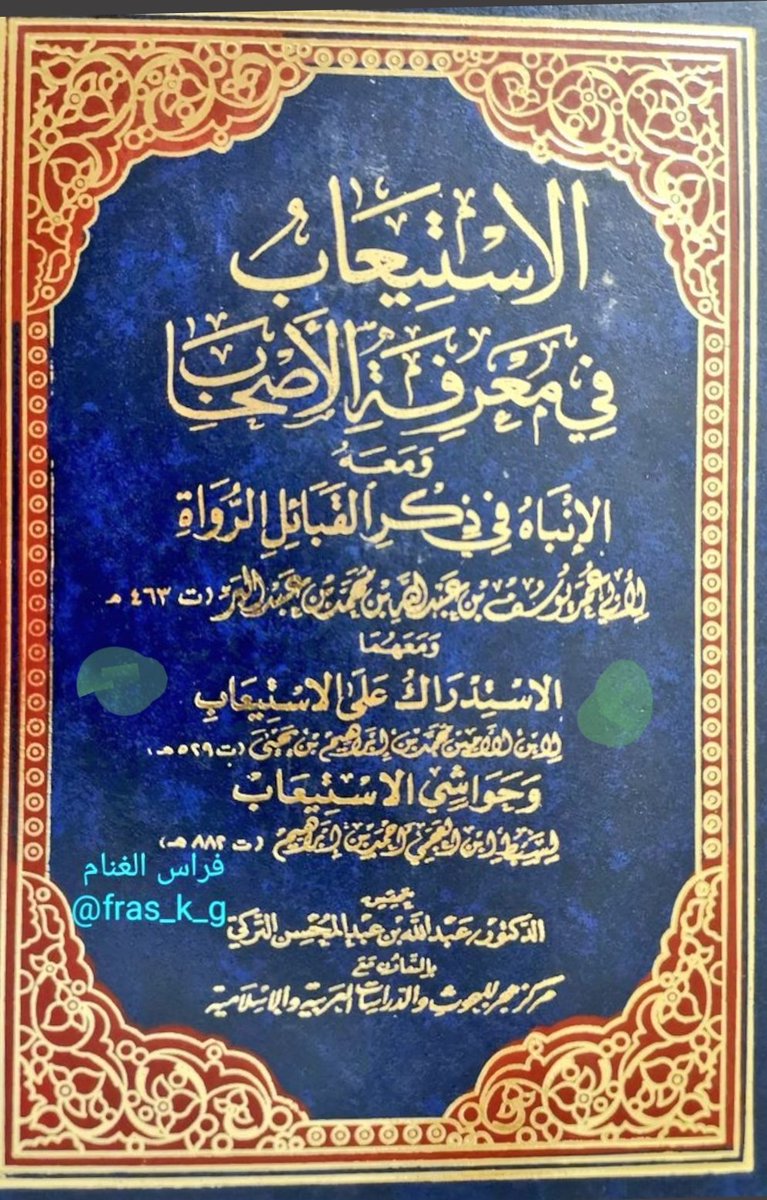 الاسْتِيعَابُ
فِي مَعْرِفَةِ الأَصْحَابِ
وَمَعَهُ
الإِنْبَاهُ فِي ذِكْرِ القَبَائِلِ الرُّوَاةِ
لِأَبِي عُمَرَ يُوسُفَ بْنِ عَبْدِ اللهِ بْنِ مُحَمَّدِ بْنِ عَبْدِ البَرِّ (ت ٤٦٣ هـ
وَمَعَهُمَا
الاسْتِدْرَاكُ عَلَى الاسْتِيعَابِ
لابن الأمين محمد بن إبراهيم بن يحيى (ت ٥٢٩ هـ)
وَحَوَاشِي الاسْتِيعَابِ
لسبط ابن العجمي أحمد بن إبراهيم (ت ٨٨٢ هـ)
فراس الغنام
@fras_k_g
تحقيق
الدكتور/ عبد الله بن عبد المحسن التركي
بالتعاون مع
مركز هجر للبحوث والدراسات العربية والإسلامية